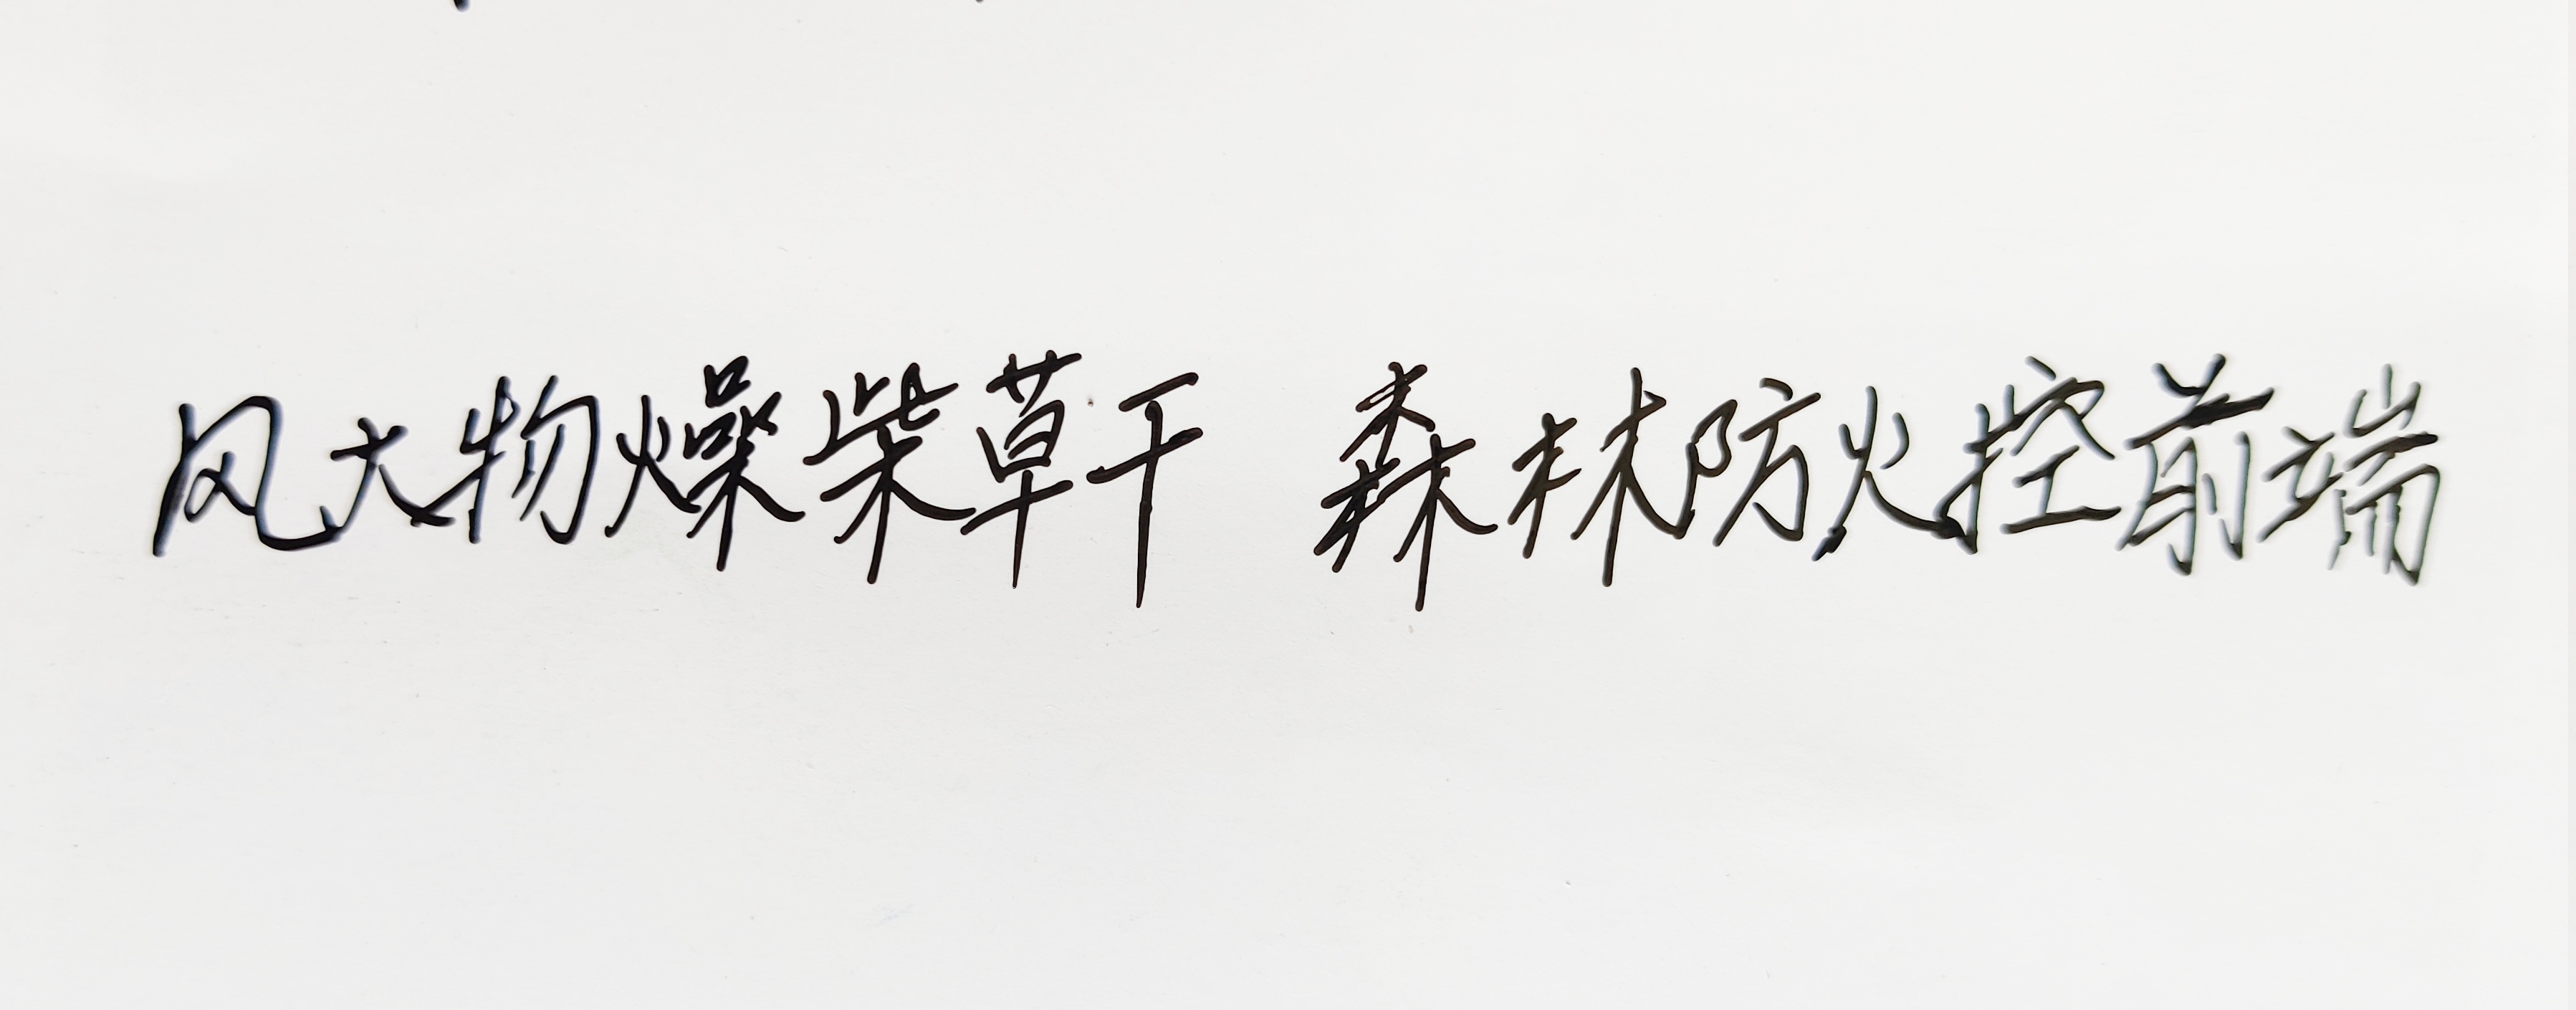 风大物燥柴草干 森林防火控前端